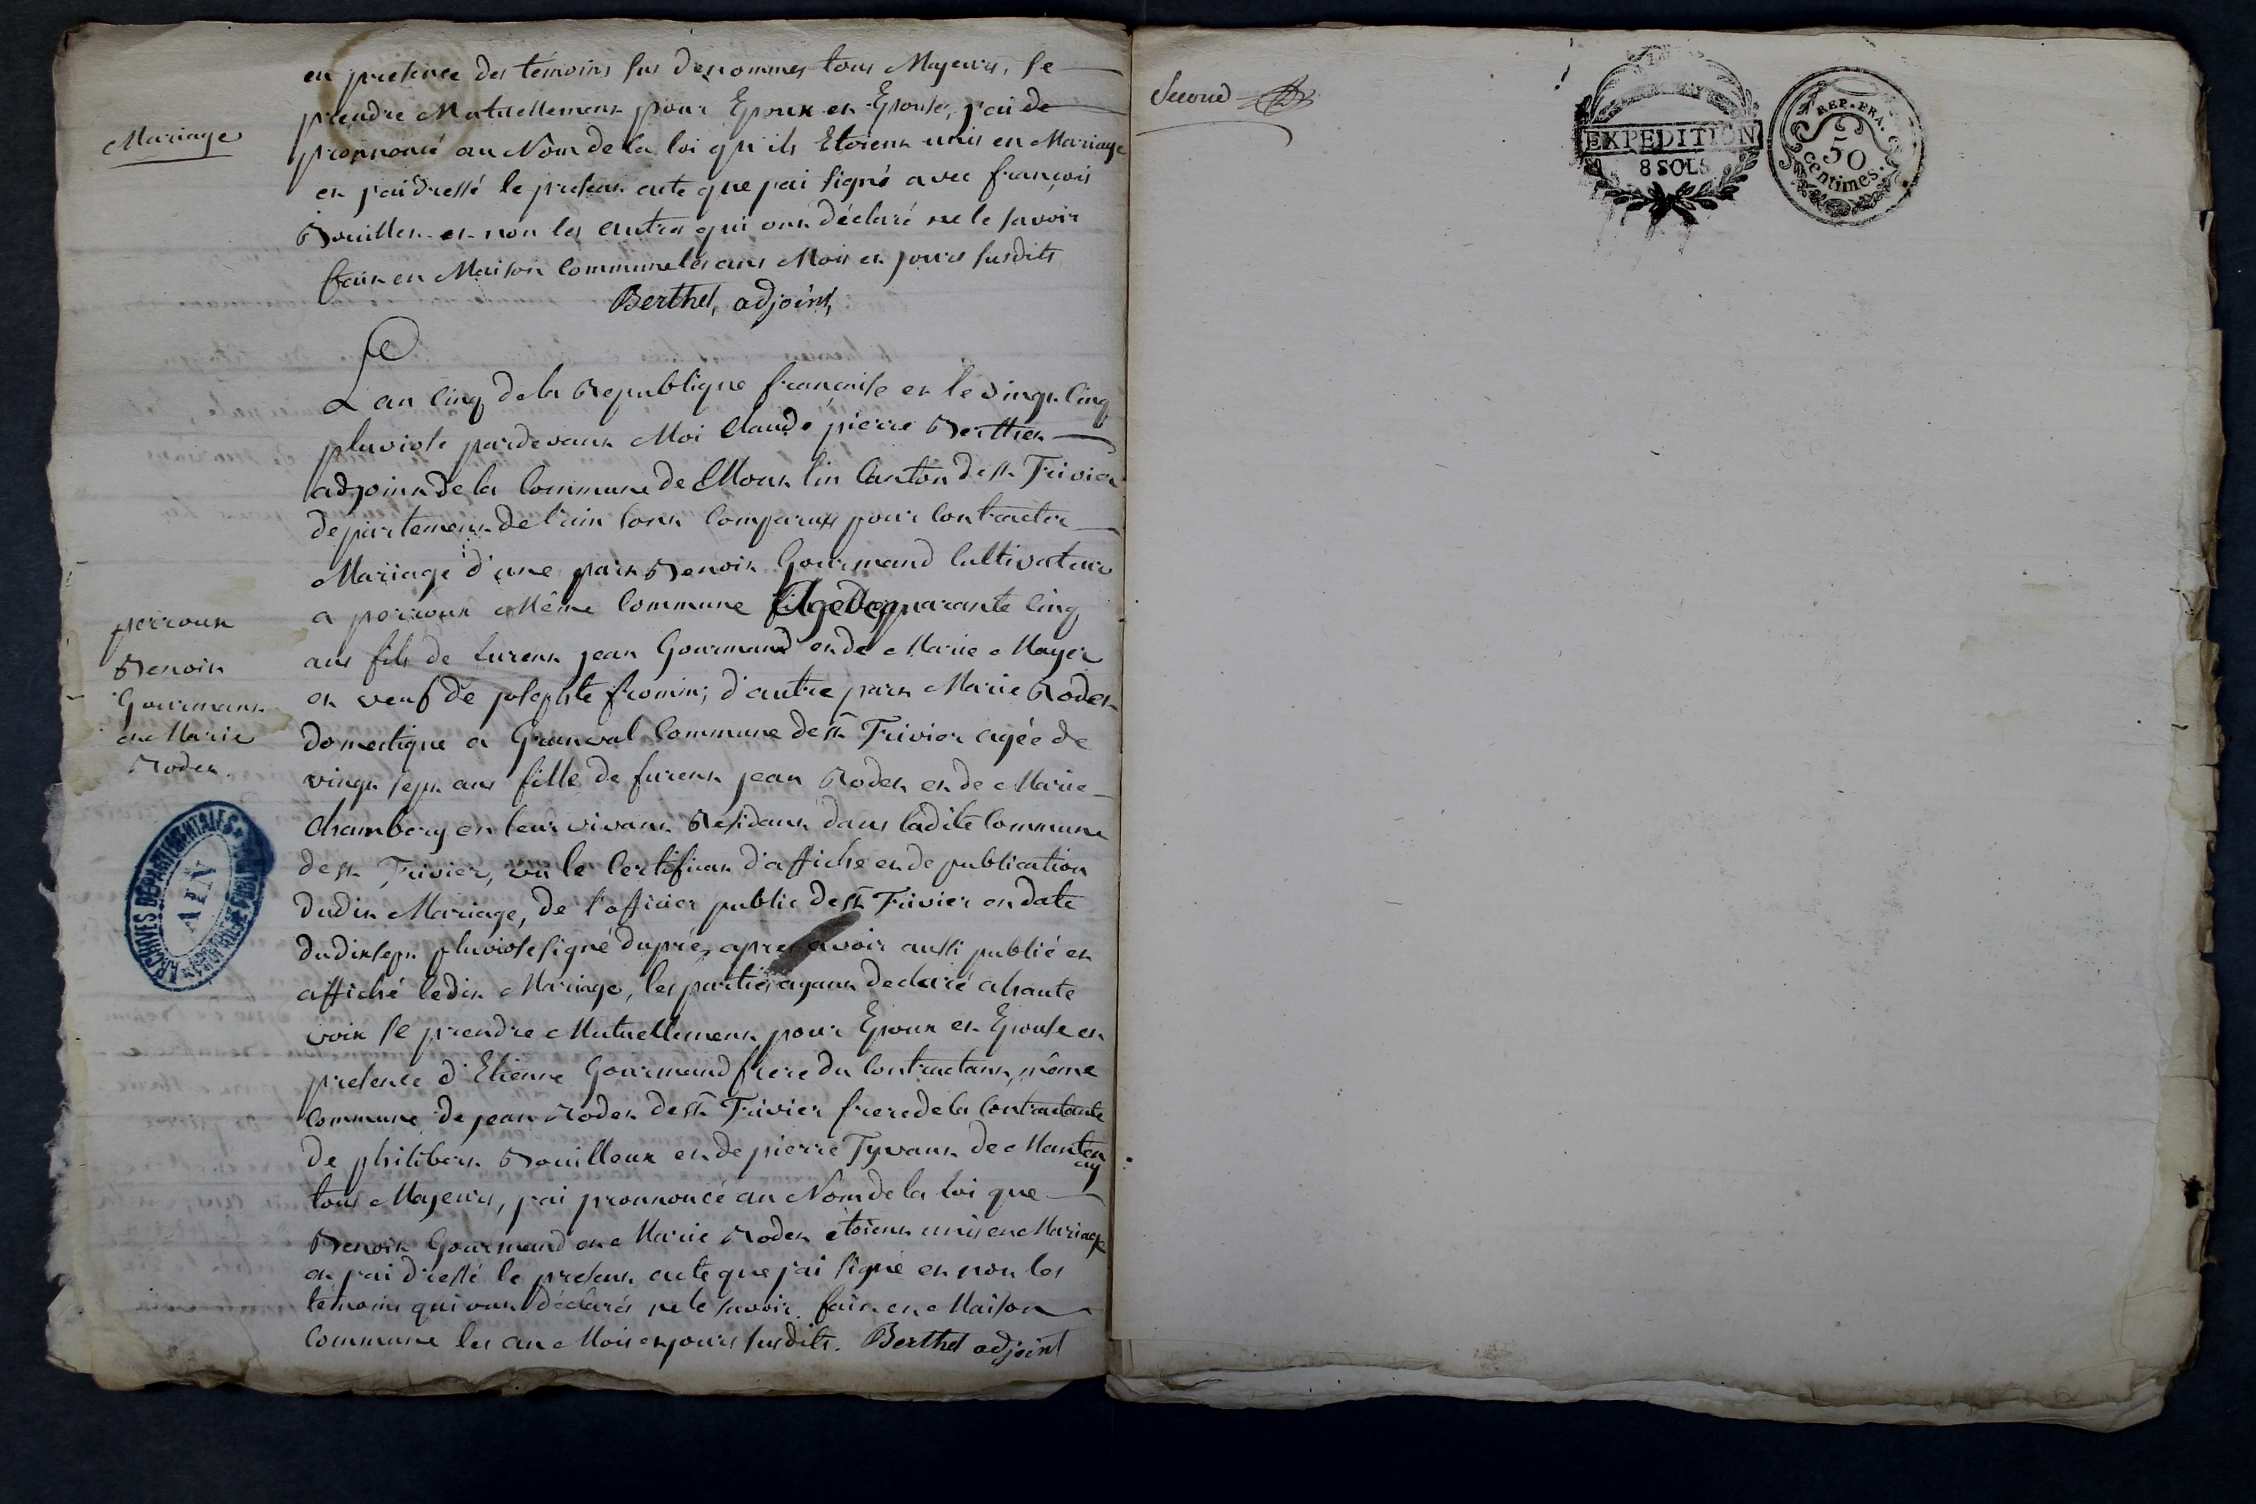 en presence des témoins sus denommes tous Majeurs, se
prendre Mutuellement pour Epoux et Epouse, j'ai de
Mariage
prononcé au Nom de la loi qu'ils Etoient unis en Mariage
et j'ai dressé le present acte que j'ai signé avec françois
Bouillet et non les autres qui ont déclaré ne le savoir
fait en Maison Commune les ans Mois et jours susdits
Berthet, adjoint,
L'an cinq de la Republique francaise et le vingt cinq
pluviose pardevant Moi Claude pierre Berthet
adjoint de la Commune de Mont lin Canton de st Trivier
departement de l'ain sont Comparus pour Contracter
Mariage d'une part Benoit Gourmand Cultivateur
a perroux Même Commune Agé de quarante cinq
ans fils de furent jean Gourmand et de Marie Mayer
et veuf de josephte fromin; d'autre part Marie Rodet
domestique a Granval Commune de st Trivier agée de
vingt sept ans fille de furent jean Rodet et de Marie
Chambery en leur vivant Residant dans ladite Commune
de st Trivier, vu le Certificat d'affiche et de publication
dudit Mariage, de l'officier public de st Trivier en date
du dix sept pluviose signé dupré, apres avoir aussi publié et
affiché ledit Mariage, les parties ayant declaré a haute
voix se prendre Mutuellement pour Epoux et Epouse en
presence d'Etienne Gourmand frere du Contractant, même
Commune, de jean Rodet de st Trivier frere de la Contractante
de philibert Bouilloux et de pierre Tyvant de Manten
ay
tous Majeurs, j'ai prononcé au Nom de la loi que
Benoit Gourmand et Marie Rodet etoient unis en Mariage
et j'ai dressé le present acte que j'ai signé et non les
témoins qui ont déclarés ne le savoir. fait en Maison
Commune les an Mois et jours susdits. Berthet adjoint
perroux
Benoit
Gourmant
et Marie
Rodet.
ARCHIVES DEPARTEMENTALES
AIN
Second
EXPEDITION
8 SOLS
REP. FRA.
50
centimes.